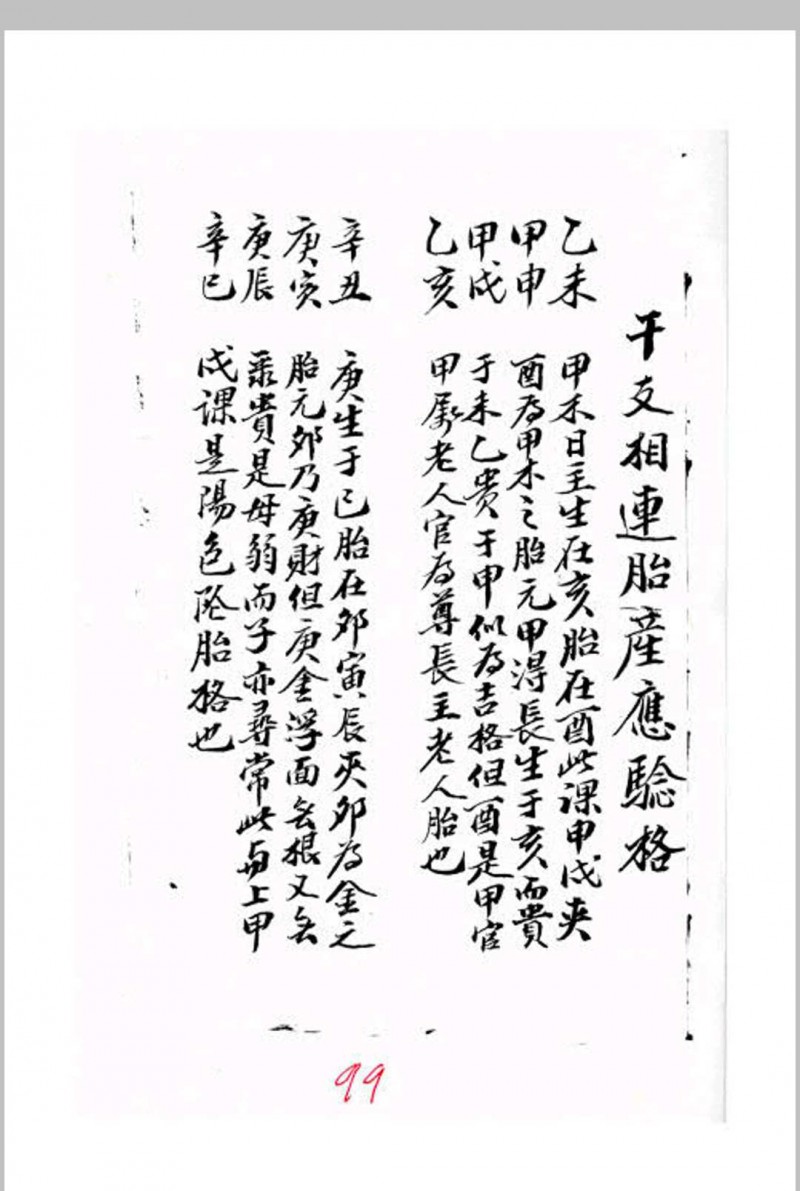 干支相連胎產應驗格
乙未
甲申
甲戌
乙亥
甲木日主生在亥胎在酉此課甲戌夾
酉為甲木之胎元甲得長生于亥而貴
于未乙貴于申似為吉格但酉是甲官
甲屬老人官為尊長主老人胎也
辛丑
庚寅
庚辰
辛巳
庚生于巳胎在卯寅辰夾卯為金之
胎元卯乃庚財但庚金浮面無根又無
乘貴是母弱而子亦尋常此與上甲
戌課是陽色墜胎格也
99